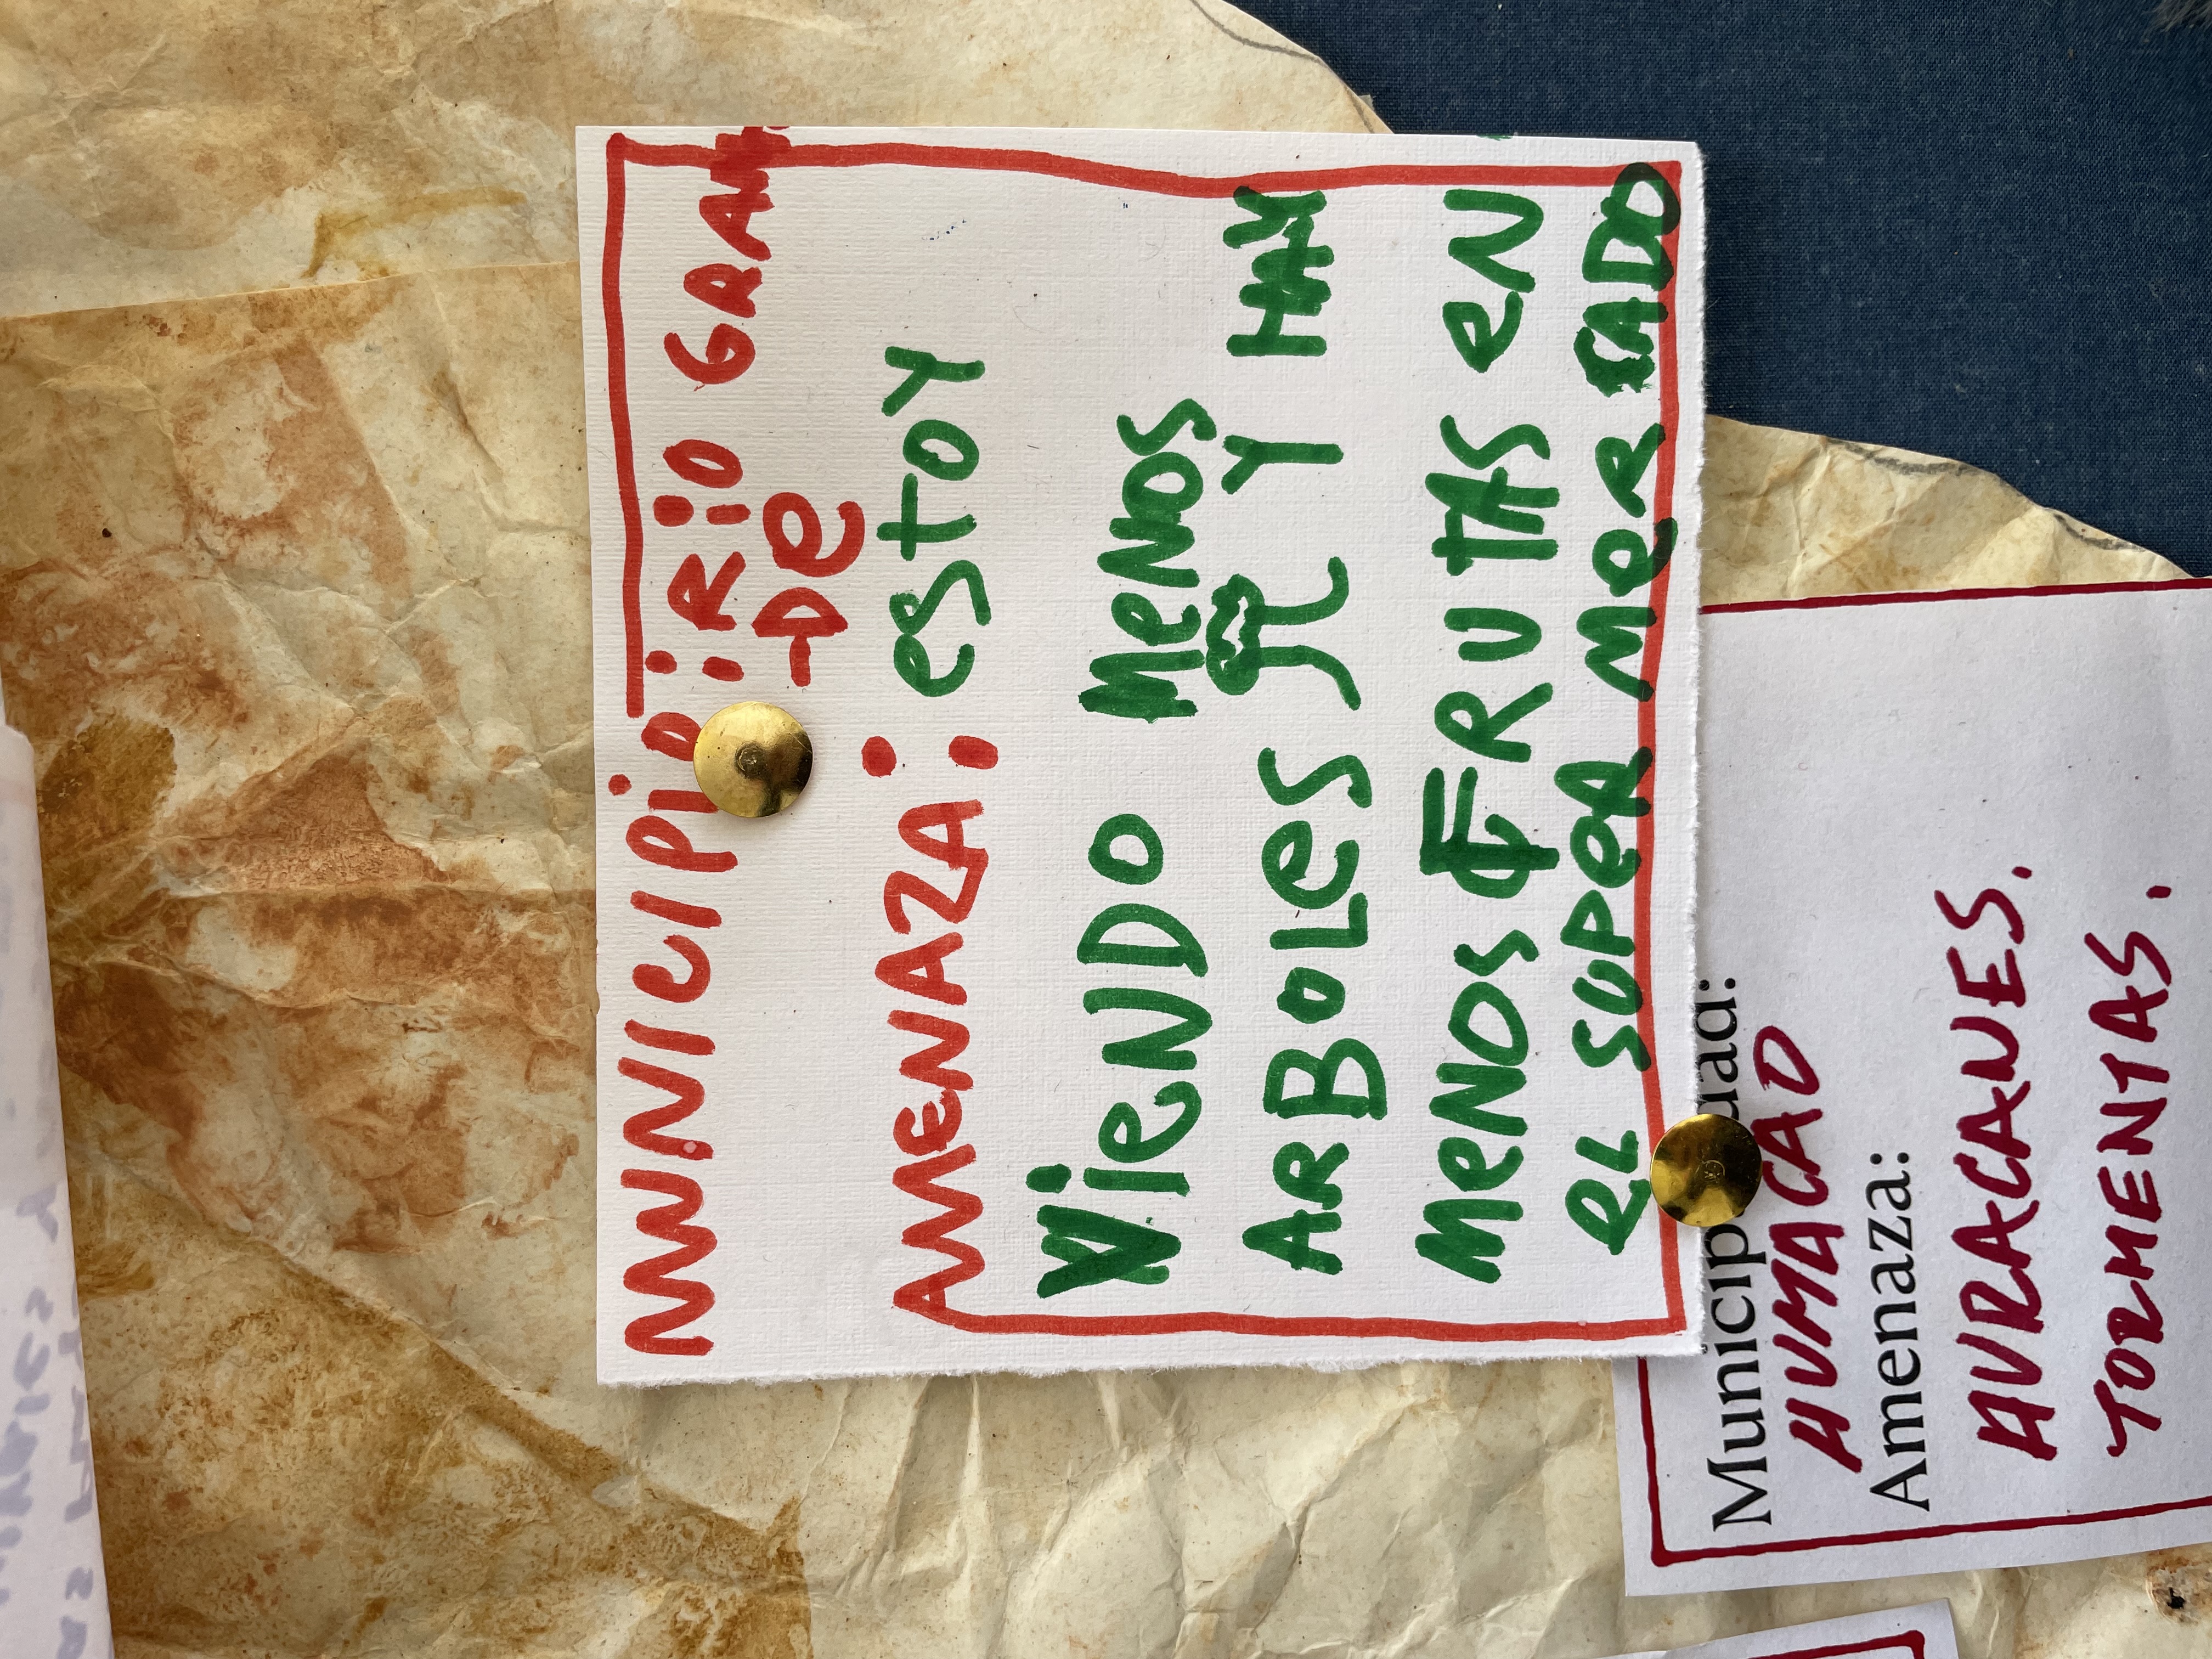 MUNICIPIO: RiO GRAN
-De
AMENAZA: estoy
VieNDO MeNos
ARBoLes Y HAY
MeNos FRUTAS eN
eL SUPeR MeRSADO
Municipalidad:
HUMACAO
Amenaza:
HURACANES.
TORMENTAS.